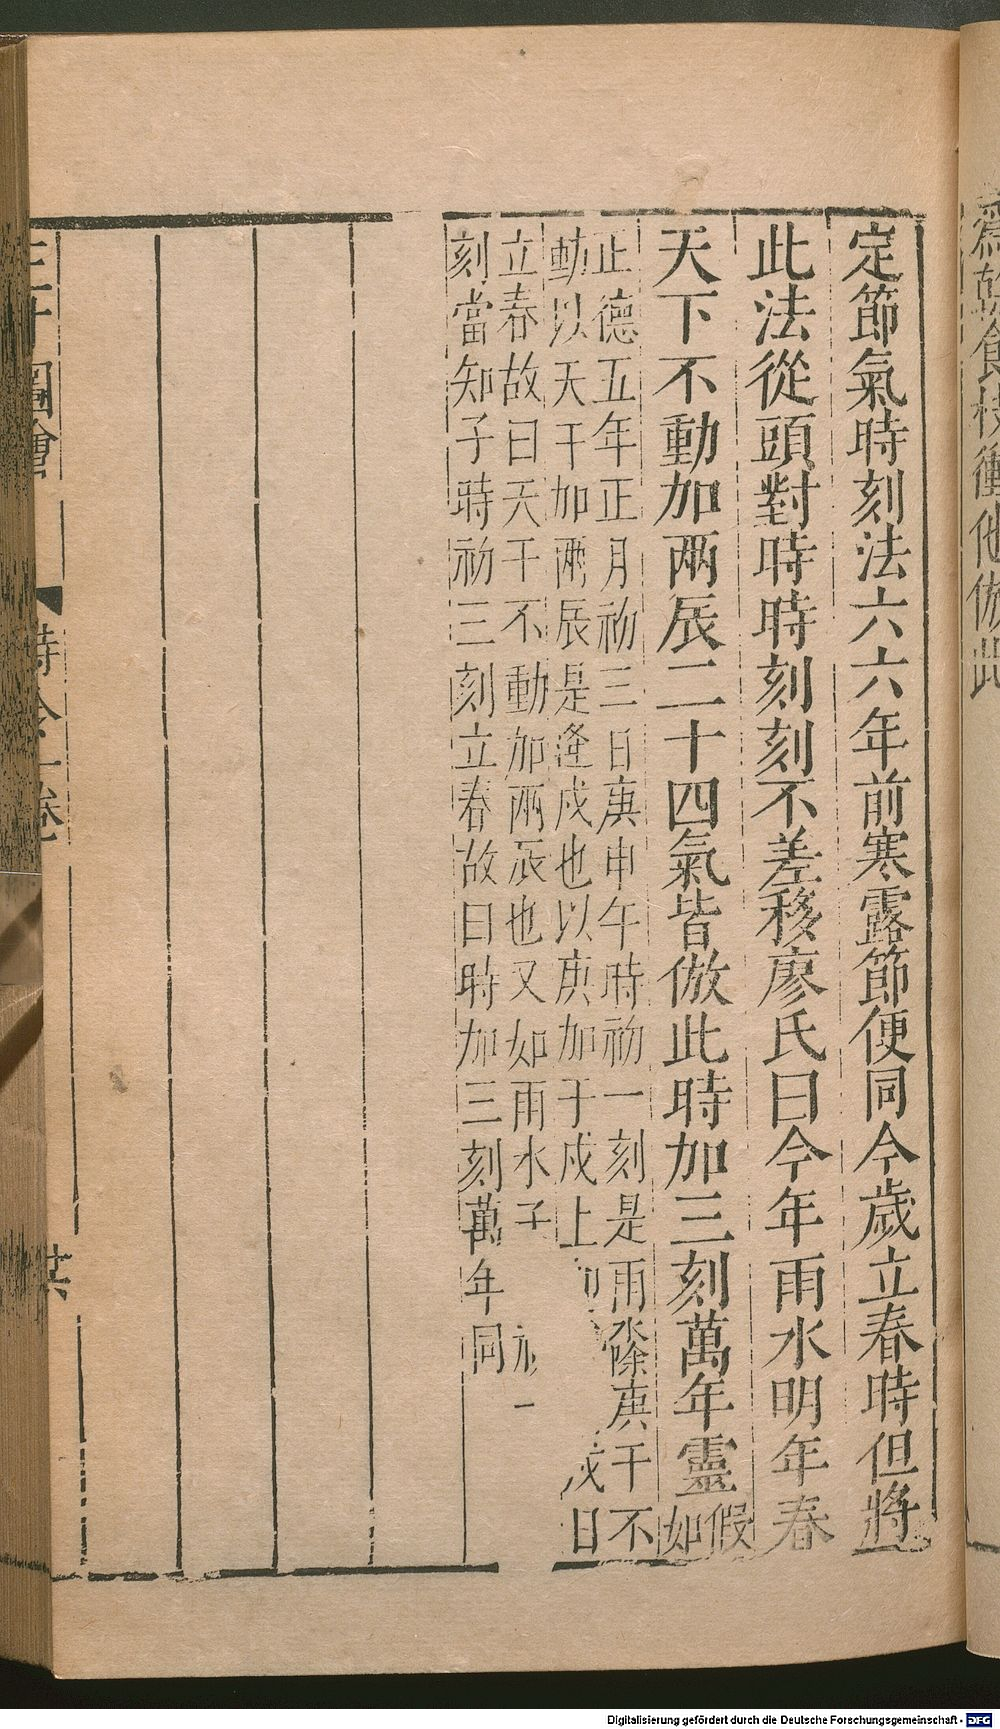 定節氣時刻法六六年前寒露節便同今歲立春時但將
此法從頭對時時刻刻不差移廖氏曰今年雨水明年春
天下不動加两辰二十四氣皆倣此時加三刻萬年靈假如
正德五年正月初三日庚申午時初一刻是雨水除庚干不
動以天干加两辰是逢戍也以庚加于戍上
戍日
立春故曰天干不動加两辰也又如雨水子
一
刻當知子時初三刻立春故曰時加三刻萬年同
三才圖會
時令一卷
倣此
Digitalisierung gefördert durch die Deutsche Forschungsgemeinschaft - DFG